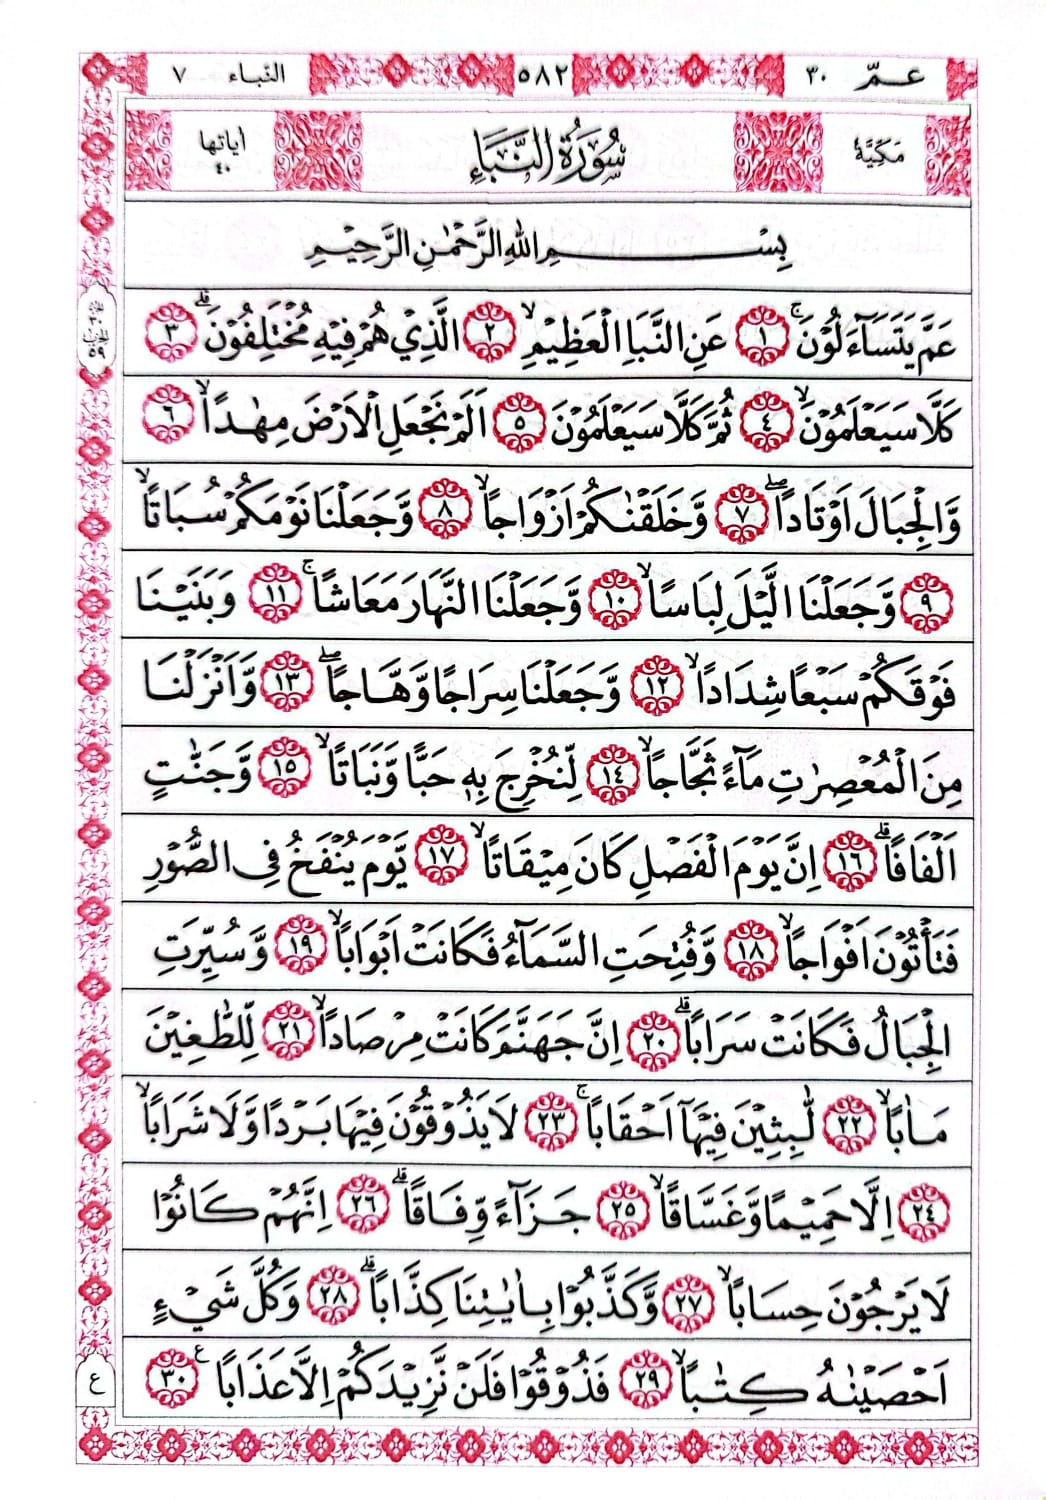 عـمّ ٣٠ ٥٨٢ النّباء ٧
مَكِيَّةٌ سُوْرَةُ النَّبَاِ اٰياتها ٤٠
بِسْمِ اللّٰهِ الرَّحْمٰنِ الرَّحِيْمِ
عَمَّ يَتَسَآءَلُوْنَۚ ١ عَنِ النَّبَاِ الْعَظِيْمِۙ ٢ الَّذِيْ هُمْ فِيْهِ مُخْتَلِفُوْنَۗ ٣
كَلَّا سَيَعْلَمُوْنَۙ ٤ ثُمَّ كَلَّا سَيَعْلَمُوْنَ ٥ اَلَمْ نَجْعَلِ الْاَرْضَ مِهٰدًاۙ ٦
وَّالْجِبَالَ اَوْتَادًاۖ ٧ وَّخَلَقْنٰكُمْ اَزْوَاجًاۙ ٨ وَّجَعَلْنَا نَوْمَكُمْ سُبَاتًاۙ
٩ وَّجَعَلْنَا الَّيْلَ لِبَاسًاۙ ١٠ وَّجَعَلْنَا النَّهَارَ مَعَاشًاۚ ١١ وَبَنَيْنَا
فَوْقَكُمْ سَبْعًا شِدَادًاۙ ١٢ وَّجَعَلْنَا سِرَاجًا وَّهَّاجًاۖ ١٣ وَّاَنْزَلْنَا
مِنَ الْمُعْصِرٰتِ مَآءً ثَجَّاجًاۙ ١٤ لِّنُخْرِجَ بِهٖ حَبًّا وَّنَبَاتًاۙ ١٥ وَّجَنّٰتٍ
اَلْفَافًاۗ ١٦ اِنَّ يَوْمَ الْفَصْلِ كَانَ مِيْقَاتًاۙ ١٧ يَّوْمَ يُنْفَخُ فِى الصُّوْرِ
فَتَأْتُوْنَ اَفْوَاجًاۙ ١٨ وَّفُتِحَتِ السَّمَآءُ فَكَانَتْ اَبْوَابًاۙ ١٩ وَّسُيِّرَتِ
الْجِبَالُ فَكَانَتْ سَرَابًاۗ ٢٠ اِنَّ جَهَنَّمَ كَانَتْ مِرْصَادًاۙ ٢١ لِّلطّٰغِيْنَ
مَاٰبًاۙ ٢٢ لّٰبِثِيْنَ فِيْهَآ اَحْقَابًاۚ ٢٣ لَا يَذُوْقُوْنَ فِيْهَا بَرْدًا وَّلَا شَرَابًاۙ
٢٤ اِلَّا حَمِيْمًا وَّغَسَّاقًاۙ ٢٥ جَزَآءً وِّفَاقًاۗ ٢٦ اِنَّهُمْ كَانُوْا
لَا يَرْجُوْنَ حِسَابًاۙ ٢٧ وَّكَذَّبُوْا بِاٰيٰتِنَا كِذَّابًاۗ ٢٨ وَكُلَّ شَيْءٍ
اَحْصَيْنٰهُ كِتٰبًاۙ ٢٩ فَذُوْقُوْا فَلَنْ نَّزِيْدَكُمْ اِلَّا عَذَابًا ع ٣٠
الجزء
٣٠
الحزب
٥٩
ع